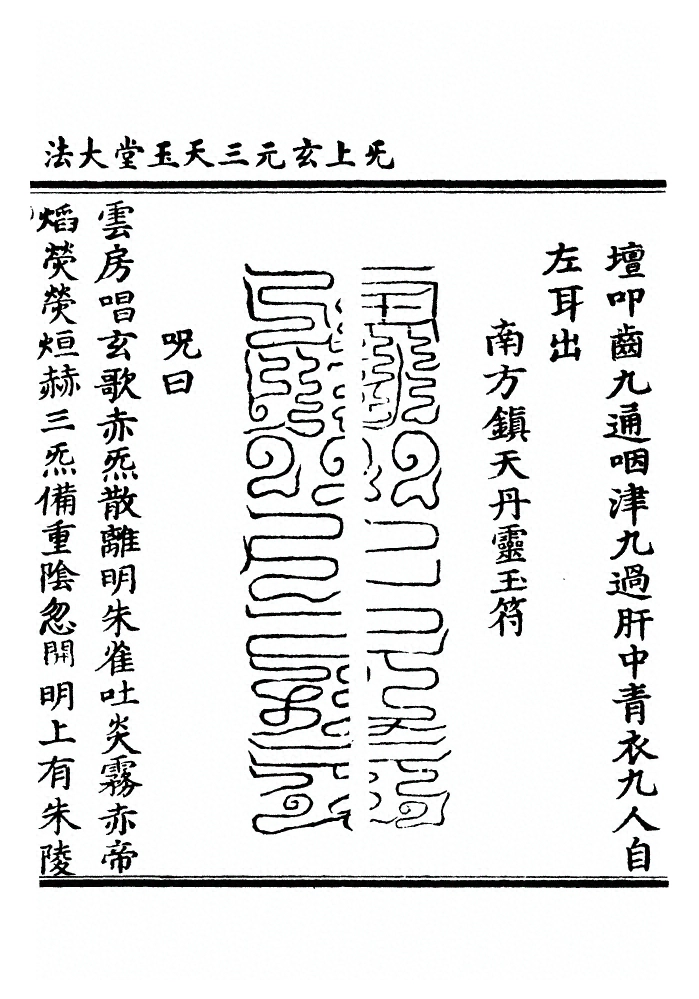 无上玄元三天玉堂大法
壇叩齒九通咽津九過肝中青衣九人自
左耳出
南方鎮天丹靈玉符
呪曰
雲房唱玄歌赤炁散離明朱雀吐炎霧赤帝
焰熒熒烜赫三炁備重陰忽開明上有朱陵